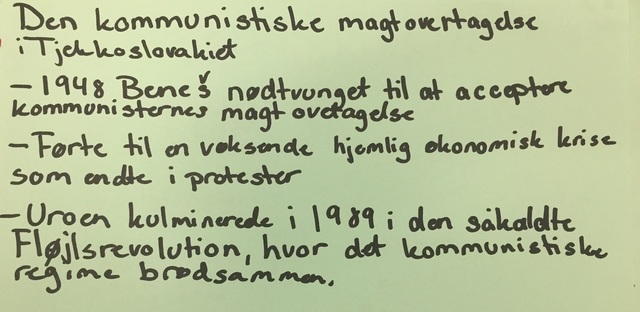 Den kommunistiske magtovertagelse
i Tjekkoslovakiet
- 1948 Beneš nødtvunget til at acceptere
kommunisternes magt ovetagelse
- Førte til en voksende hjemlig økonomisk krise
som endte i protester
- Uroen kulminerede i 1989 i den såkaldte
Fløjlsrevolution, hvor det kommunistiske
regime brødsammen.